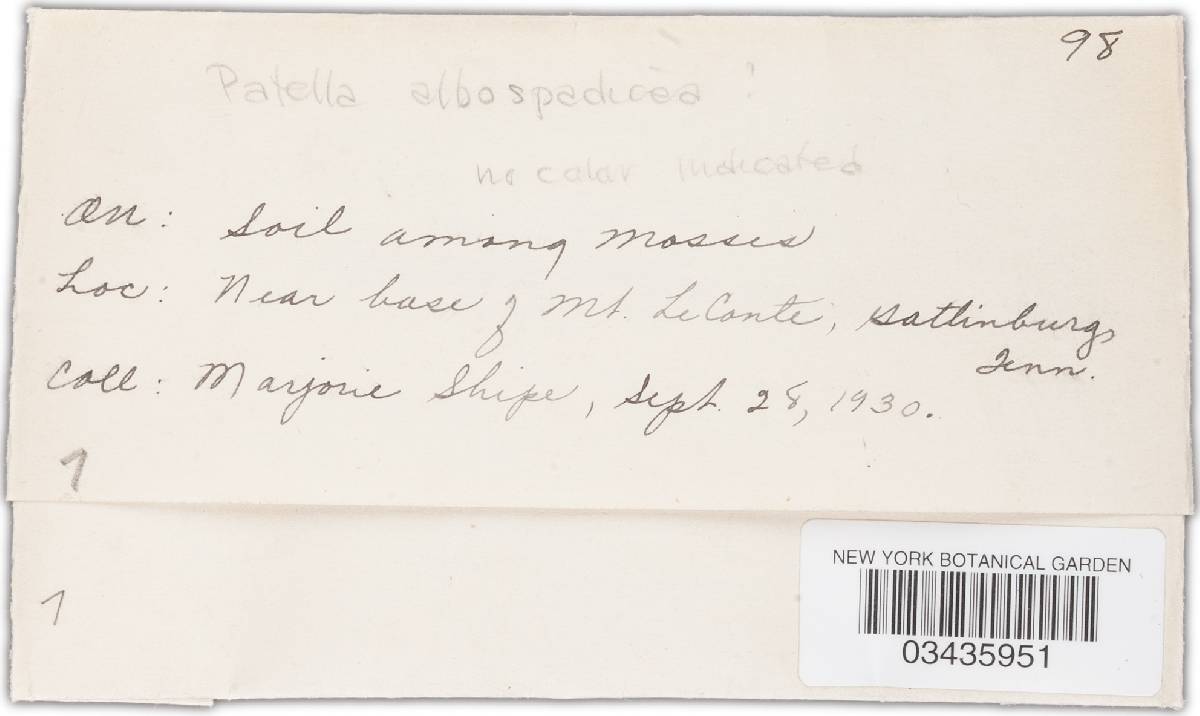 98
Patella albospadicea !
no color indicated
On: Soil among mosses
Loc: Near base of Mt. LeConte, Gatlinburg,
Tenn.
Coll: Marjorie Shipe, Sept. 28, 1930.
7
7
NEW YORK BOTANICAL GARDEN
03435951